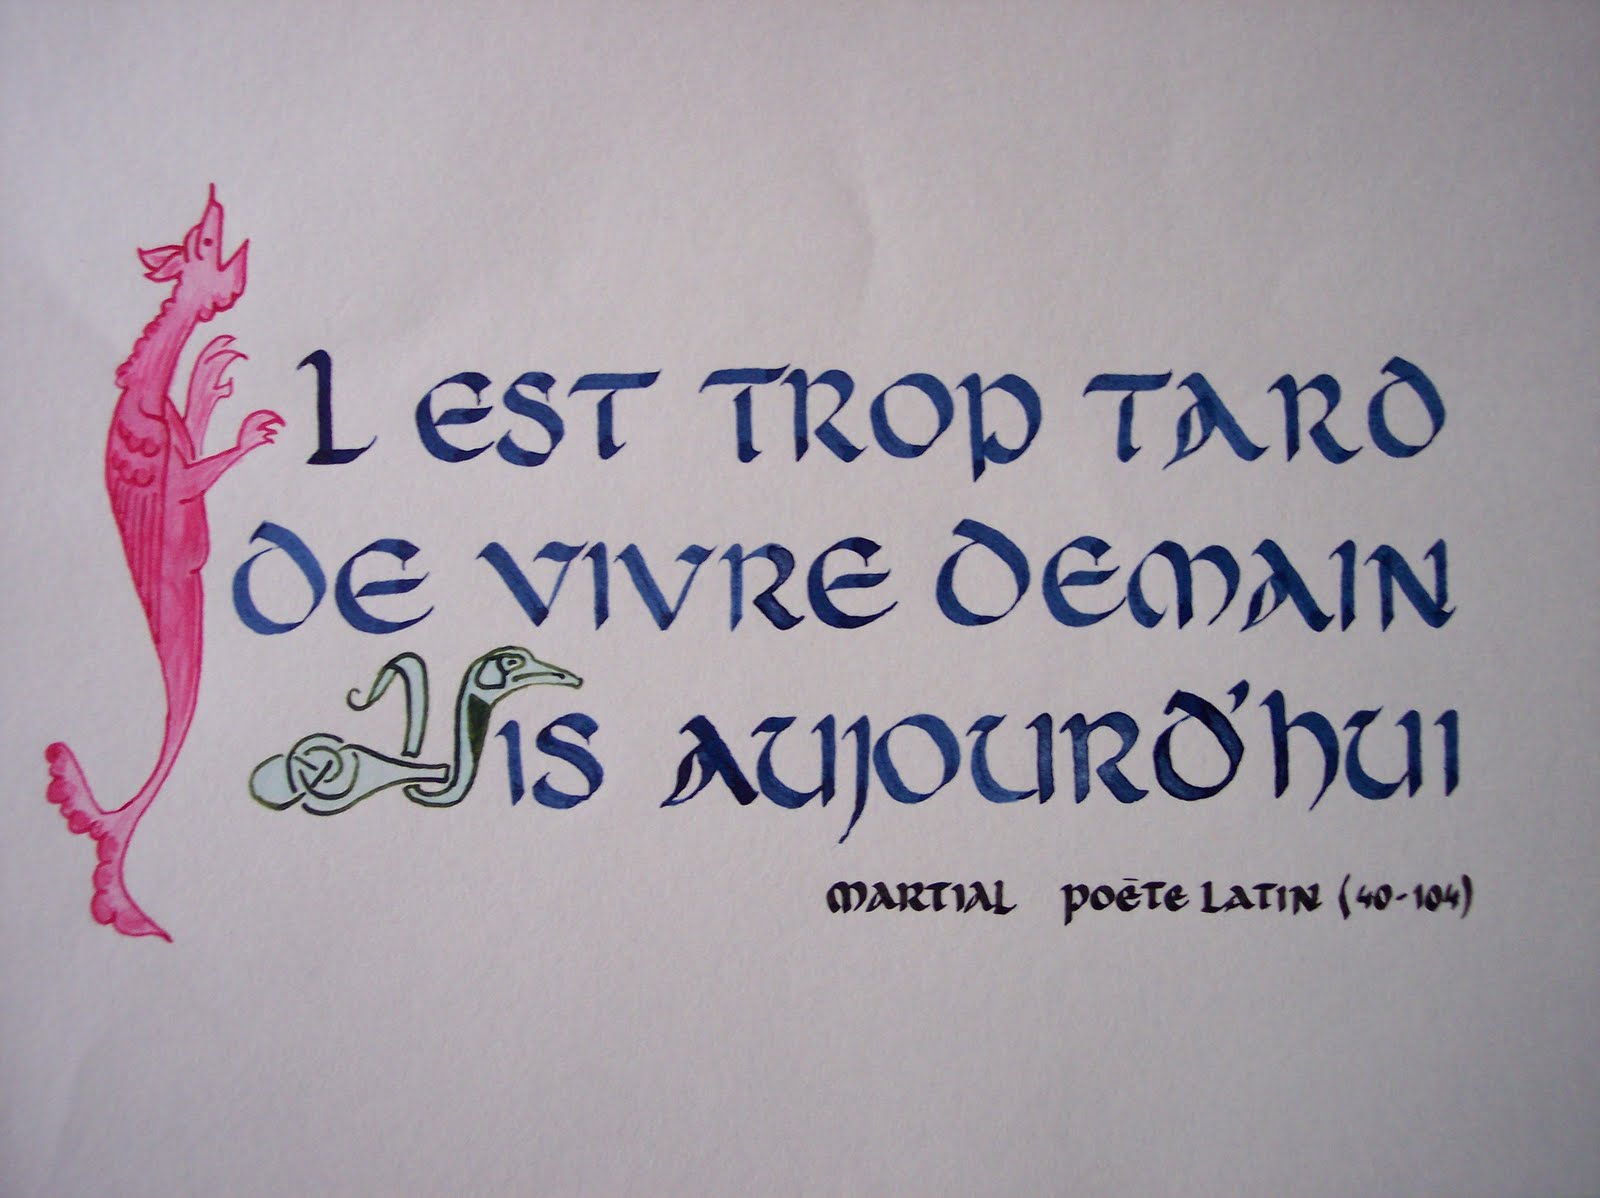 IL EST TROP TARD
DE VIVRE DEMAIN
VIS AUJOURD'HUI
MARTIAL POÈTE LATIN (40-104)